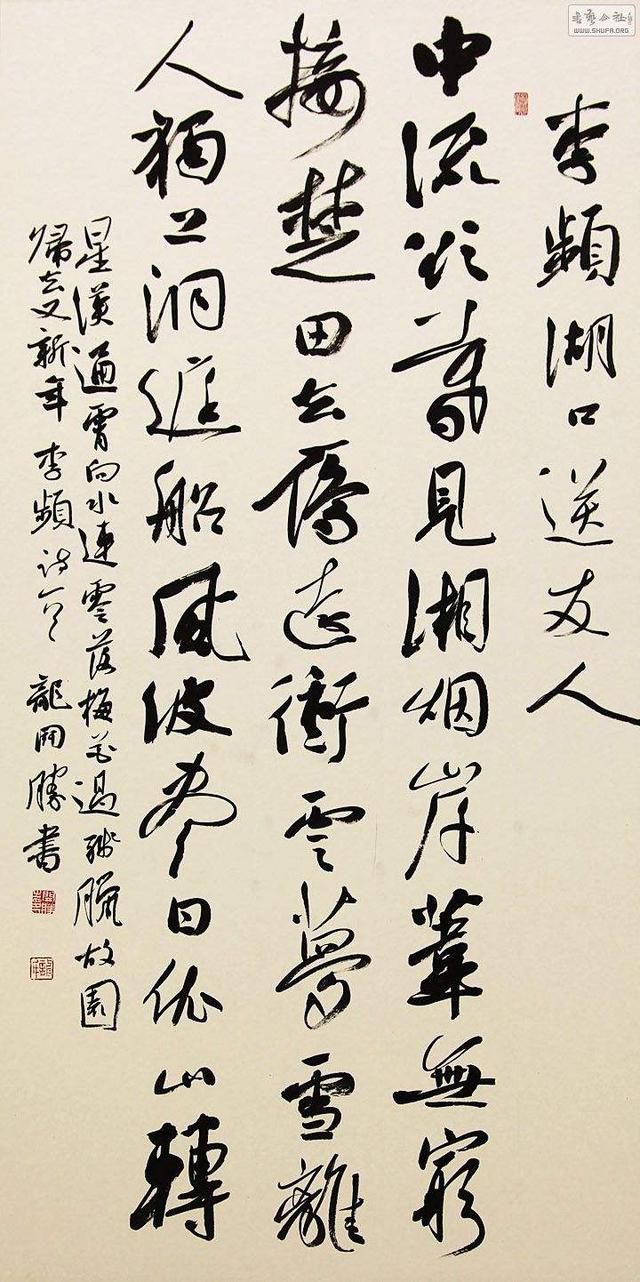 書藝公社
WWW.SHUFA.ORG
李頻湖口送友人
中流欲暮見湘烟岸葦無窮
接楚田去雁遠衝雲夢雪離
人獨上洞庭船風波盡日依山轉
星漢通霄向水連零落梅花過殘臘故園
歸去又新年 李頻詩一首 龍開勝書